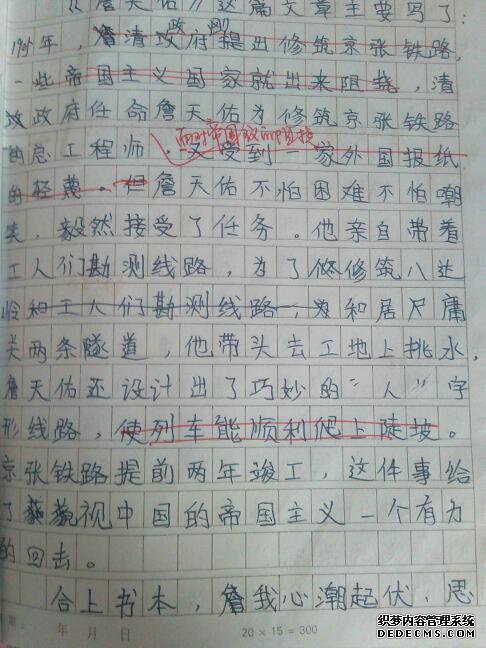 《詹天佑》这篇文章主要写了:
政府
1905年,清政府提出修筑京张铁路,
一些帝国主义国家就出来阻挠,清
政府任命詹天佑为修筑京张铁路
面对帝国主义的阻挠
的总工程师 又受到一家外国报纸
的轻蔑。但詹天佑不怕困难不怕嘲
笑,毅然接受了任务。他亲自带着
工人们勘测线路,为了修筑八达
岭和工人们勘测线路,为和居尺庸
关两条隧道,他带头去工地上挑水,
詹天佑还设计出了巧妙的“人”字
形线路,使列车能顺利爬上陡坡。
京张铁路提前两年竣工,这件事给
了藐视中国的帝国主义一个有力
的回击。
合上书本,我心潮起伏,思
期: 年 月 日
20×15=300
织梦内容管理系统
DEDECMS.COM